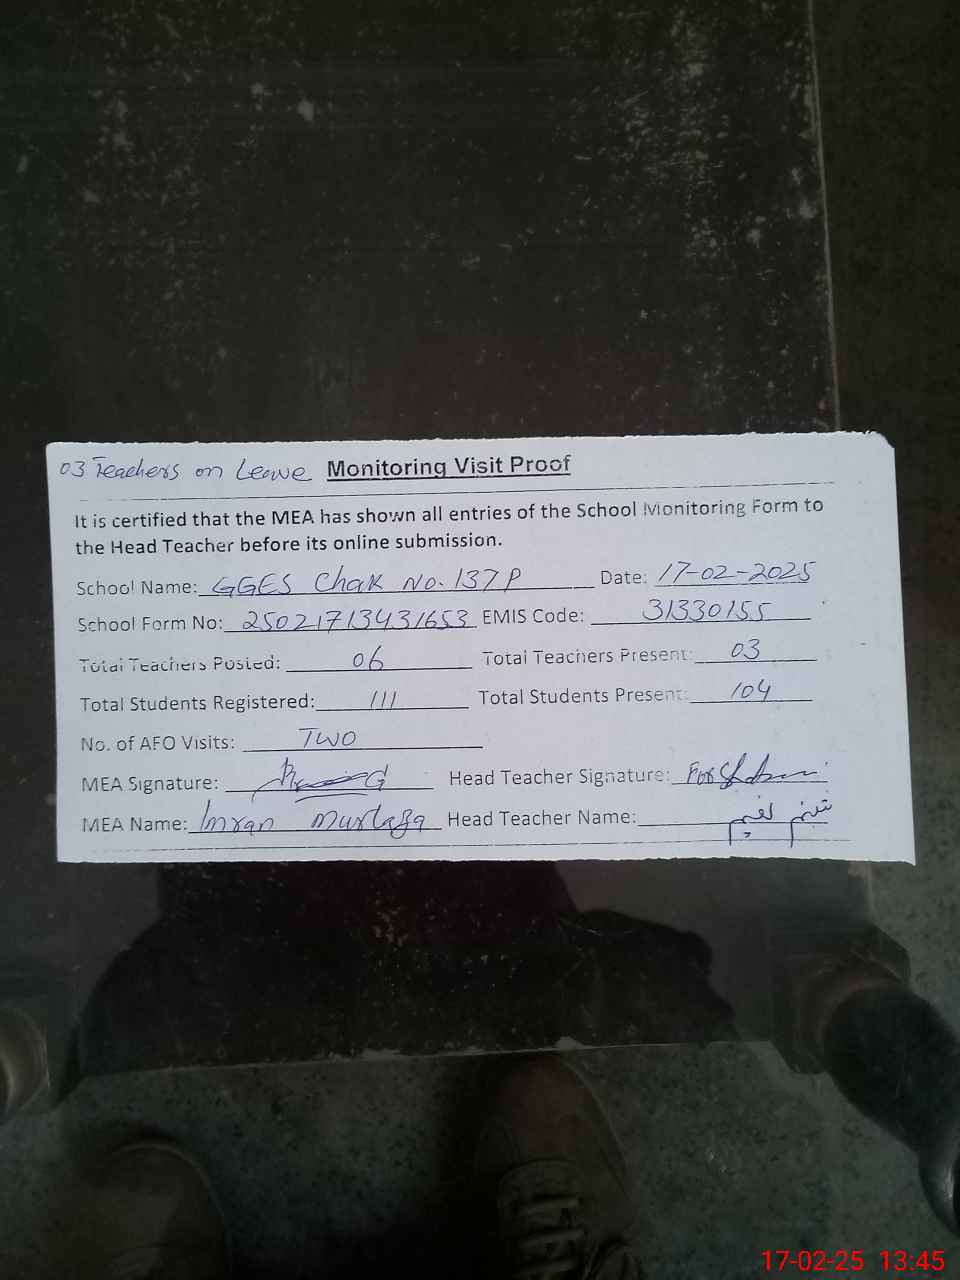 03 Teachers on Leave Monitoring Visit Proof
It is certified that the MEA has shown all entries of the School Monitoring Form to
the Head Teacher before its online submission.
School Name: GGES Chak No. 137P Date: 17-02-2025
School Form No: 25021713431653 EMIS Code: 31330155
Total Teachers Posted: 06 Total Teachers Present: 03
Total Students Registered: 111 Total Students Present: 104
No. of AFO Visits: TWO
MEA Signature: Head Teacher Signature:
MEA Name: Imran Murtaza Head Teacher Name:
17-02-25 13:45